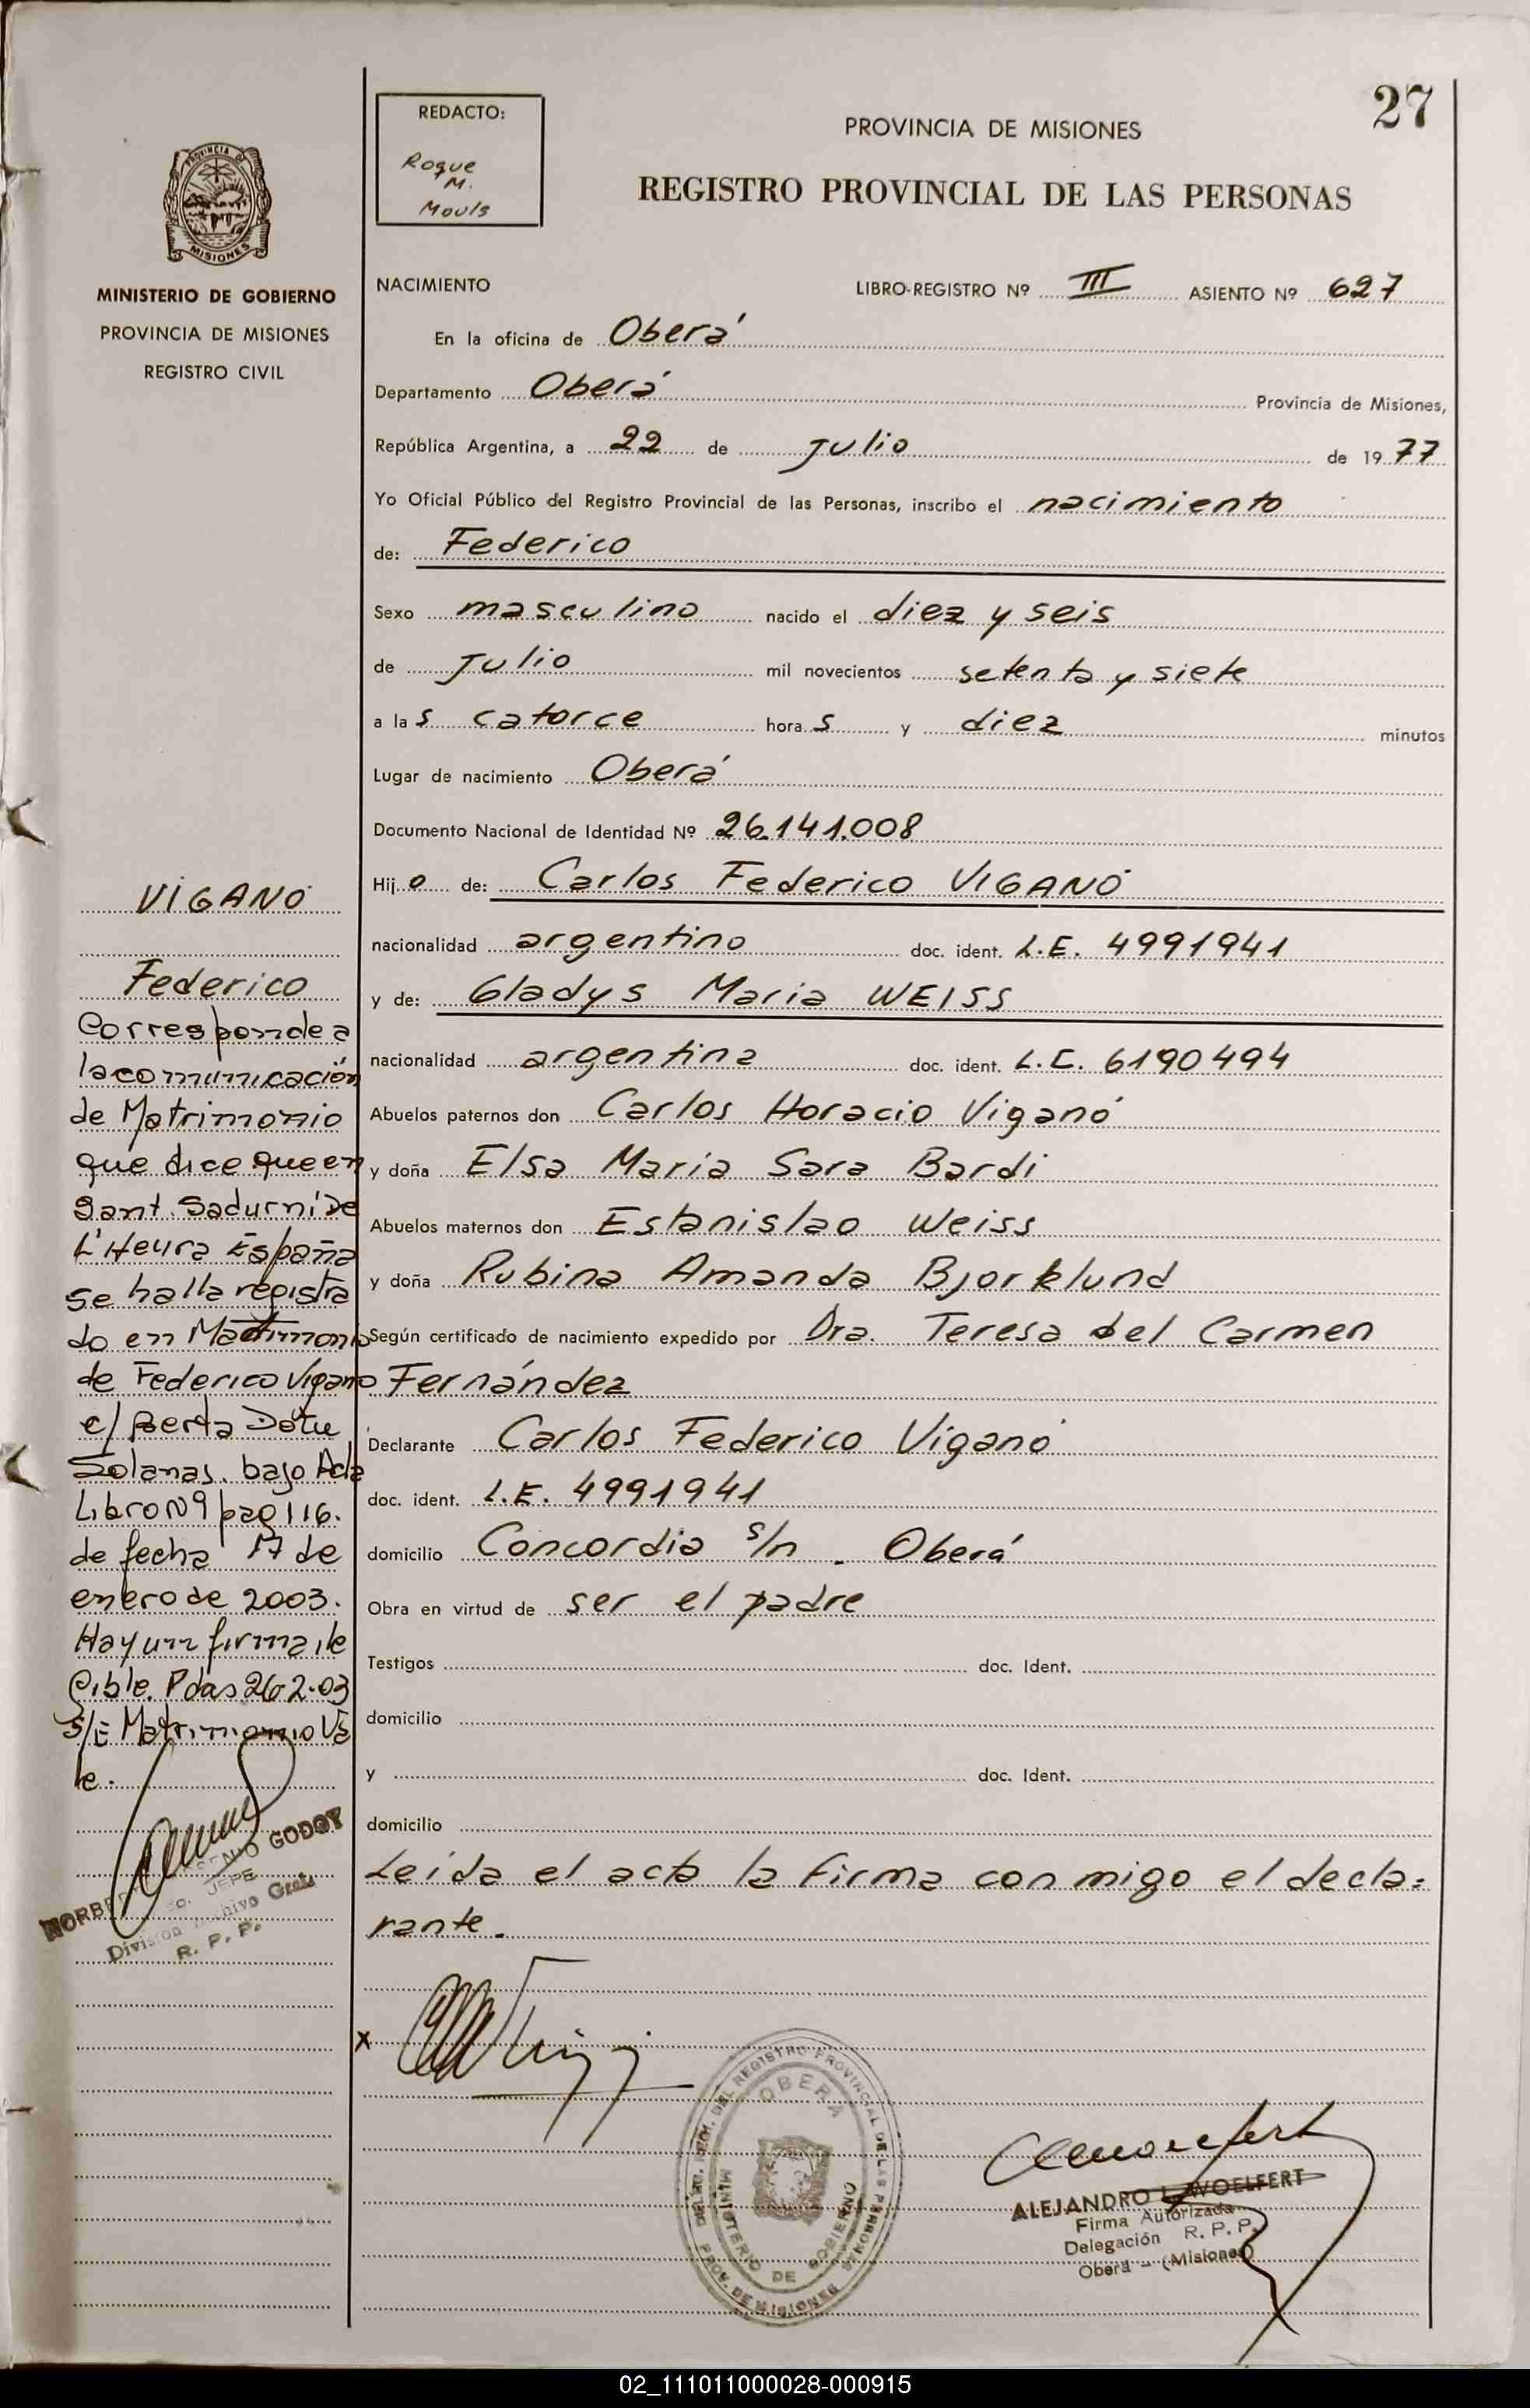 27
REDACTO:
Roque
M.
Mouls
PROVINCIA DE MISIONES
REGISTRO PROVINCIAL DE LAS PERSONAS
PROVINCIA DE
MISIONES
MINISTERIO DE GOBIERNO
PROVINCIA DE MISIONES
REGISTRO CIVIL
NACIMIENTO LIBRO-REGISTRO Nº III ASIENTO Nº 627
En la oficina de Oberá
Departamento Oberá Provincia de Misiones,
República Argentina, a 22 de Julio de 1977
Yo Oficial Público del Registro Provincial de las Personas, inscribo el nacimiento
de: Federico
Sexo masculino nacido el diez y seis
de Julio mil novecientos setenta y siete
a las catorce horas y diez minutos
Lugar de nacimiento Oberá
Documento Nacional de Identidad Nº 26.141.008
Hijo de: Carlos Federico VIGANÓ
nacionalidad argentino doc. ident. L.E. 4991941
y de: Gladys Maria WEISS
nacionalidad argentina doc. ident. L.C. 6190494
Abuelos paternos don Carlos Horacio Viganó
y doña Elsa María Sara Bardi
Abuelos maternos don Estanislao Weiss
y doña Rubina Amanda Bjorklund
Según certificado de nacimiento expedido por Dra. Teresa del Carmen
Fernández
Declarante Carlos Federico Viganó
doc. ident. L.E. 4991941
domicilio Concordia s/n. Oberá
Obra en virtud de ser el padre
Testigos doc. Ident.
domicilio
y doc. Ident.
domicilio
Leída el acta la firma con migo el decla=
rante.
x
VIGANÓ
Federico
Corresponde a
la comunicación
de Matrimonio
que dice que en
Sant. Sadurní De
L'Heura España
se halla registra
do en Matrimonio
de Federico Vigano
c/ Berta Dotu
Solanas. bajo Acta
Libro Nº9 pag 116.
de fecha 17 de
enero de 2003.
Hay un firma ile
gible. Pdas 26-2-03
S/E Matrimonio Va
le.
GODOY
JEFE
División Archivo Gral.
R. P. P.
OBERA
MINISTERIO DE GOBIERNO
PROV. DE MISIONES
ALEJANDRO L. WOELFERT
Firma Autorizada
Delegación R. P. P.
Oberá - (Misiones)
02_111011000028-000915